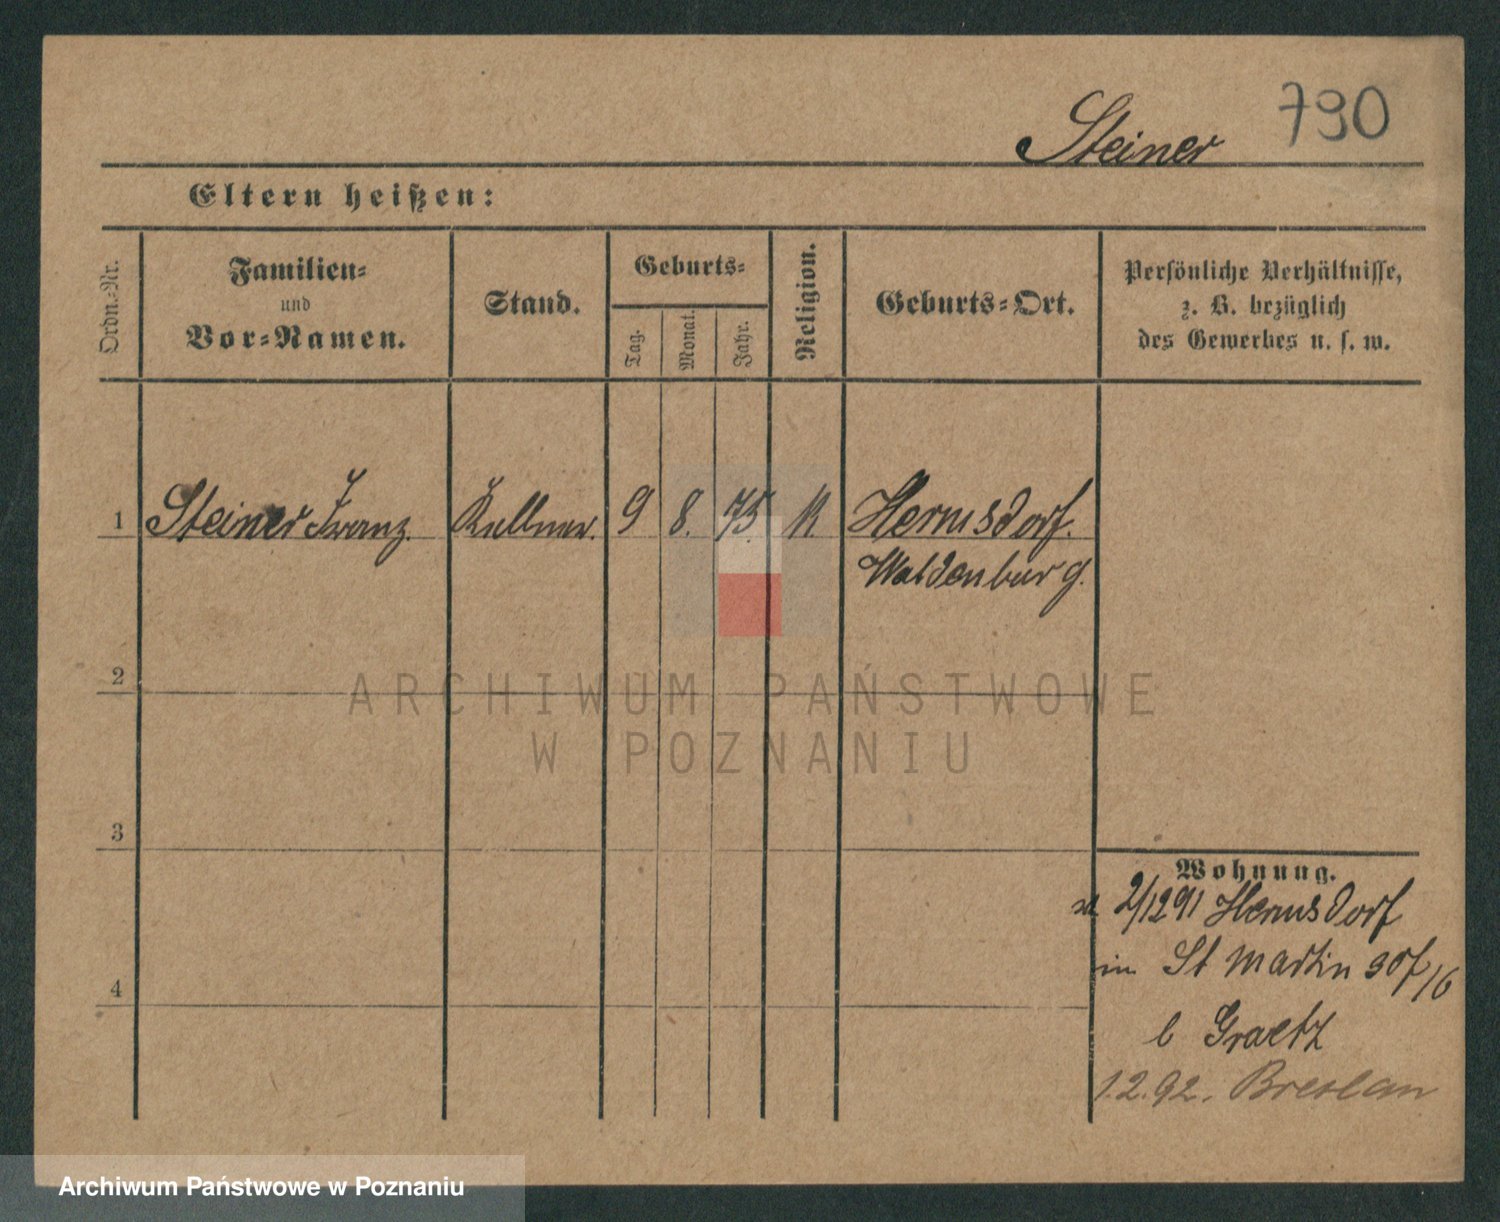 Steiner 790
Eltern heißen:
Ordn.-Nr.
Familien-
und
Vor-Namen.
Stand.
Geburts-
Tag.
Monat.
Jahr.
Religion.
Geburts-Ort.
Persönliche Verhältnisse,
z. B. bezüglich
des Gewerbes u. s. w.
1 Steiner Franz. Kellner. 9 8. 75. K. Hermsdorf.
Waldenburg.
2
3
4
Wohnung.
2/12 91 Hermsdorf
in St Martin
b Graetz
1.2.92. Breslau
ARCHIWUM PAŃSTWOWE
W POZNANIU
Archiwum Państwowe w Poznaniu